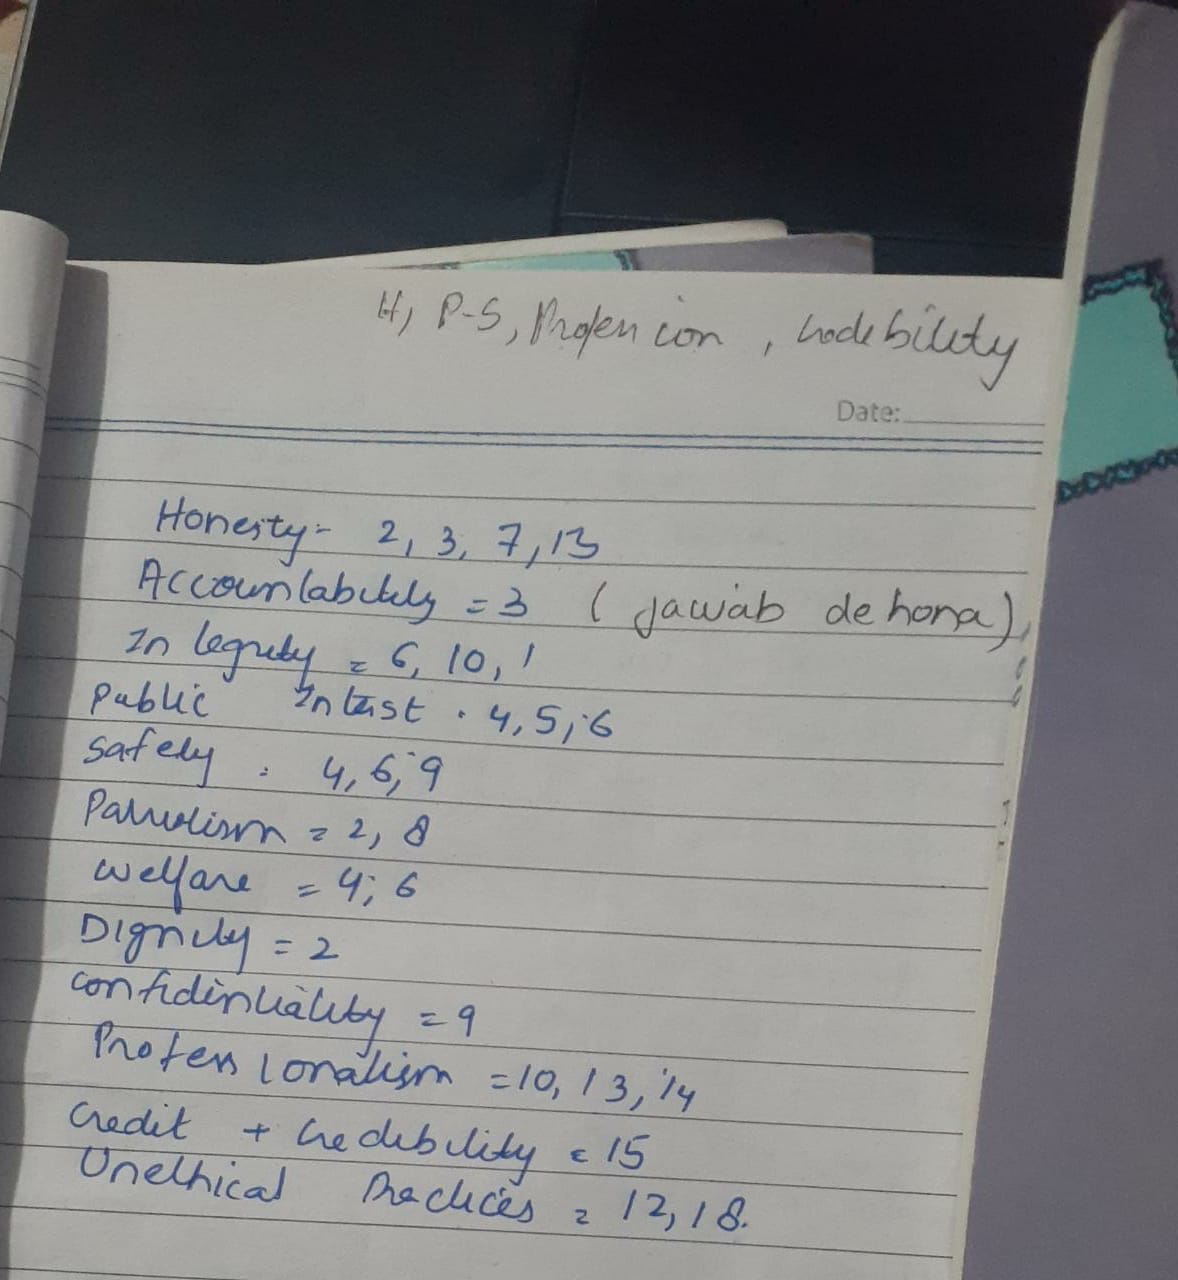 H, P-S, Profession, credebility
Date:
Honesty- 2, 3, 7, 13
Accountability = 3 ( jawab de hona)
Integrity = 6, 10, 1
Public Interst . 4, 5, 6
Safety : 4, 6, 9
Patriotism = 2, 8
welfare = 4, 6
Dignity = 2
confidentiality = 9
Professionalism = 10, 13, 14
Credit + Credebility = 15
Unethical Practices = 12, 18.